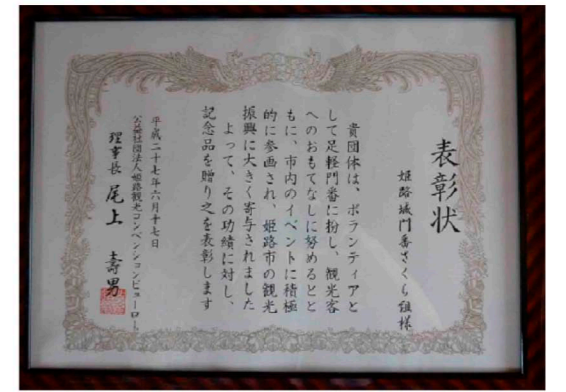 表彰状
姫路城門番さくら組様
貴団体は、ボランティアと
して足軽門番に扮し、観光客
へのおもてなしに努めるとと
もに、市内のイベントに積極
的に参画され、姫路市の観光
振興に大きく寄与されました
よって、その功績に対し、
記念品を贈り之を表彰します
平成二十七年六月十七日
公益社団法人姫路観光コンベンションビューロー
理事長 尾上 壽男